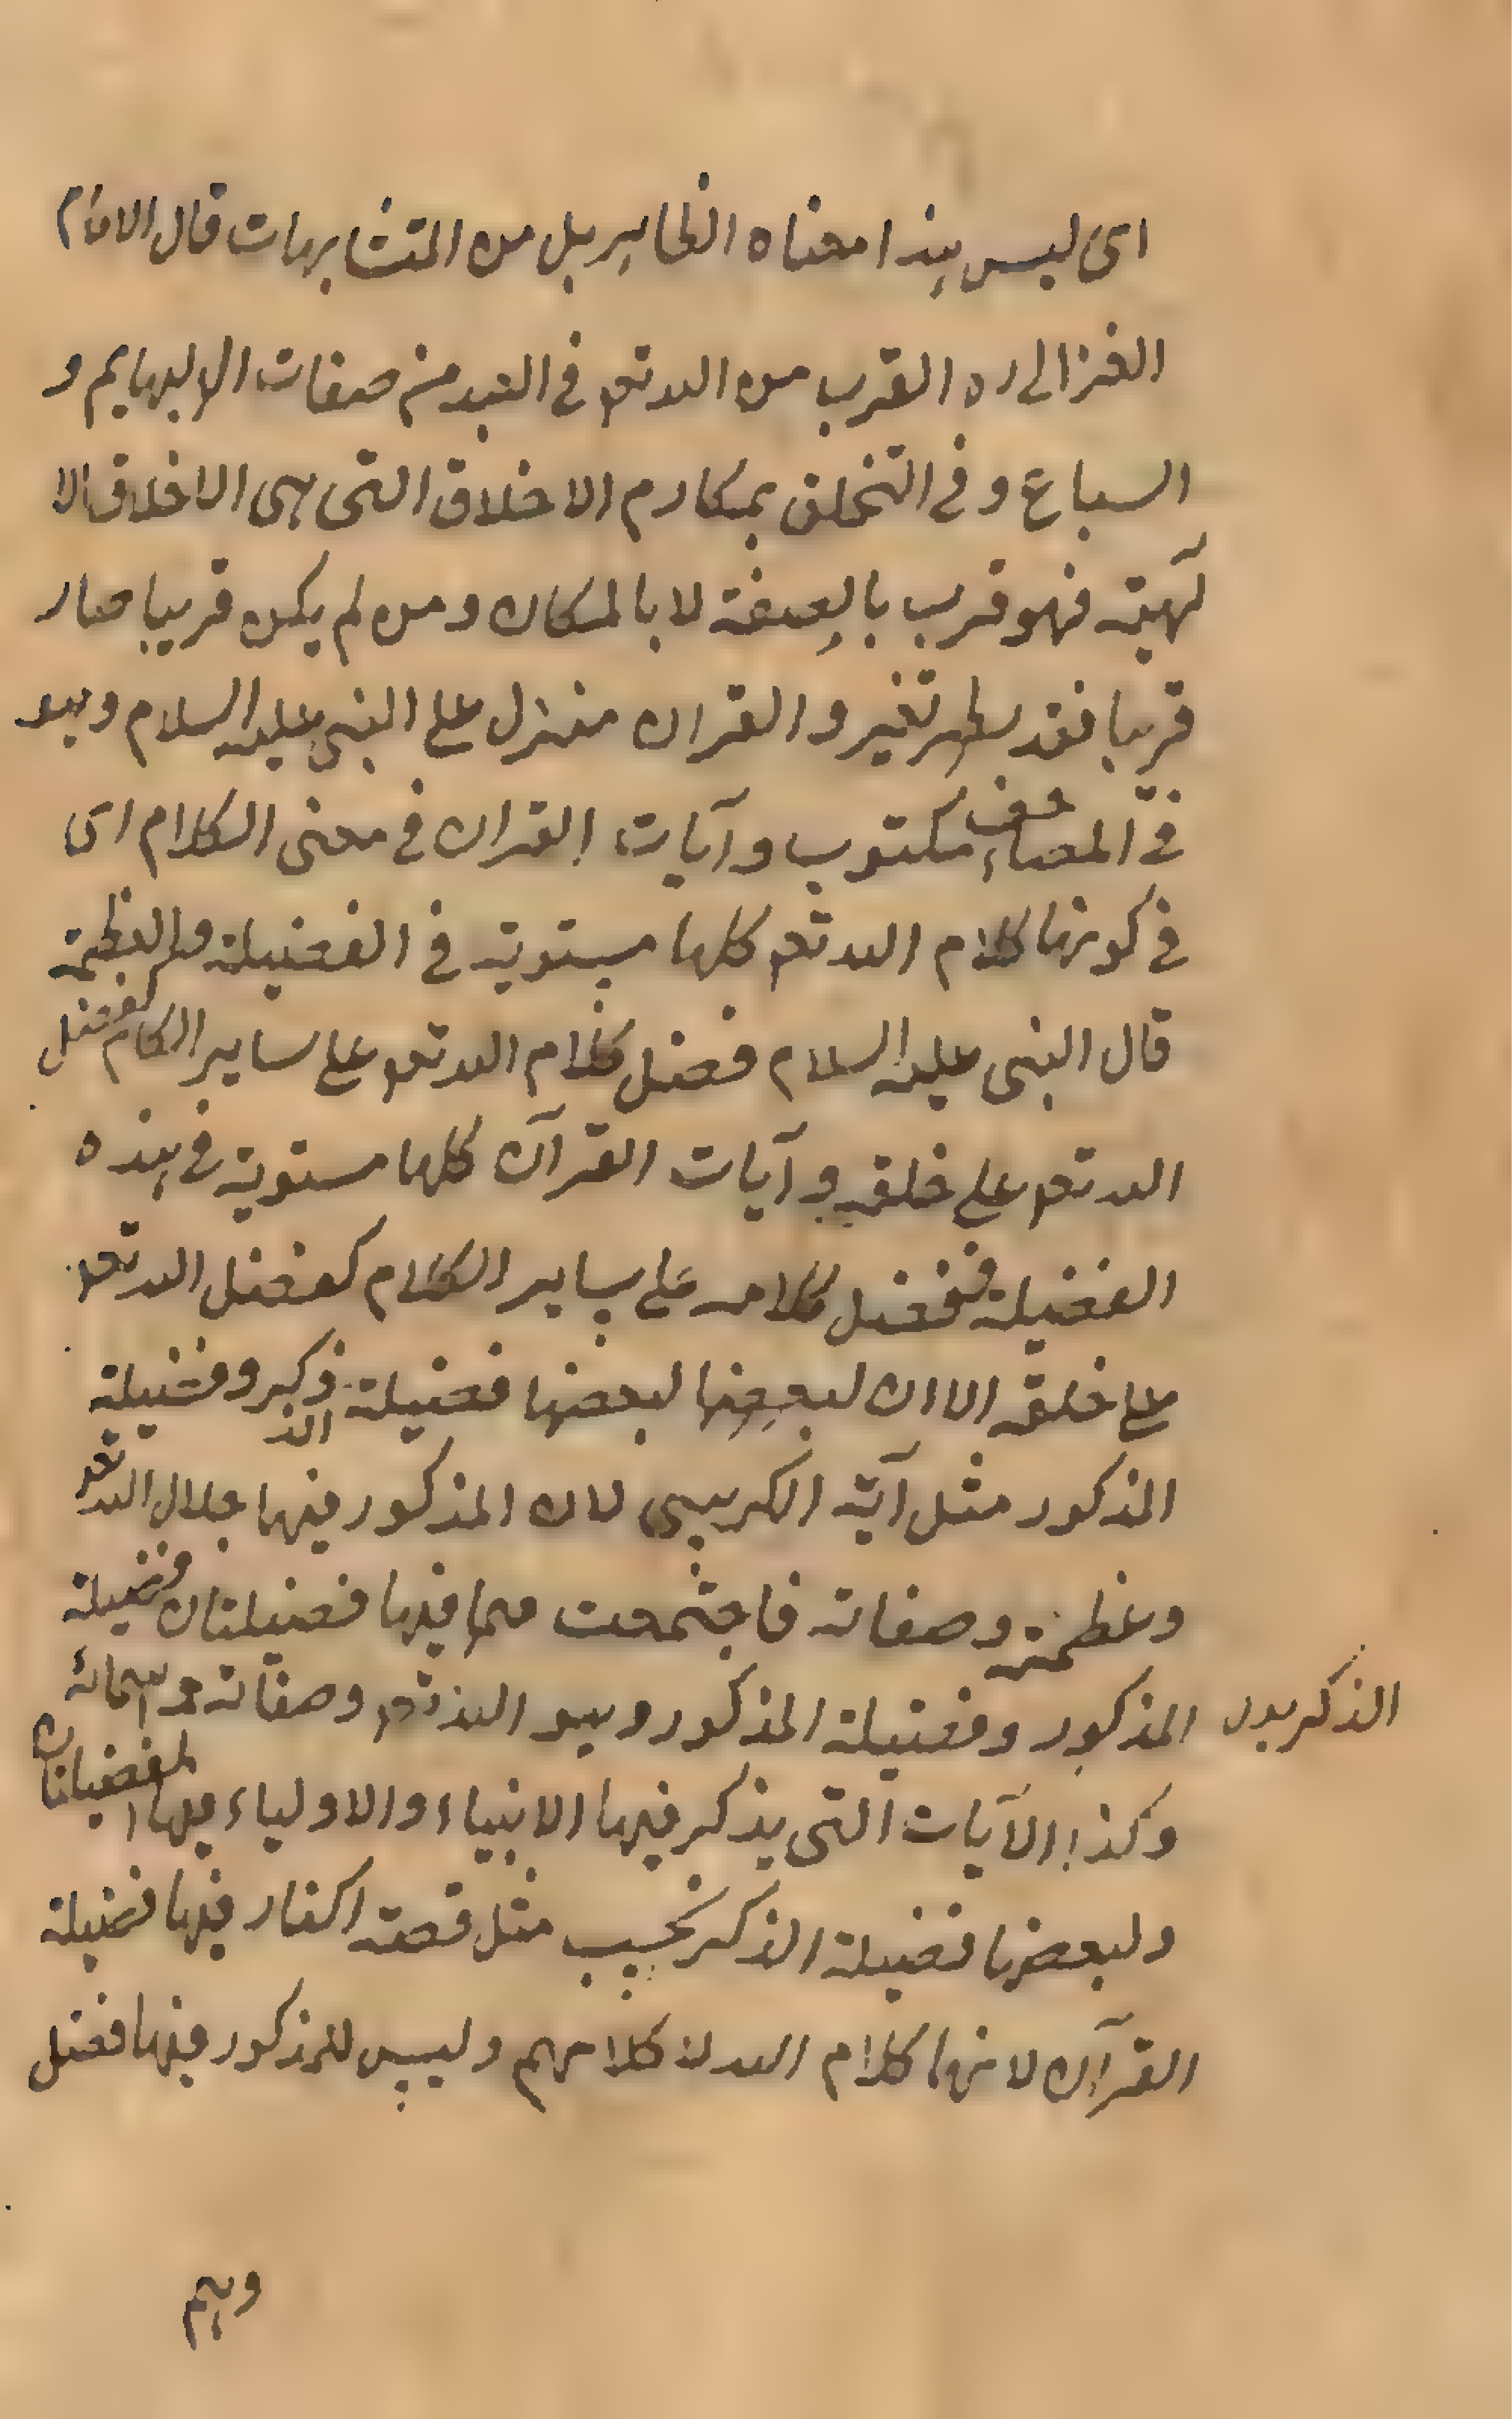 اى ليس هذا معناه الظاهر بل من المتشابهات قال الامام
الغزالى ره القرب من الله تعم فى البعد من صفات البهايم و
السباع و فى التخلق بمكارم الاخلاق التى هى الاخلاق الا
لهية فهو قرب بالصفة لا بالمكان ومن لم يكن قريبا صار
قريبا فقد تغير و القران منزل على النبى عليه السلام وهو
فى المصاحف مكتوب و آيات القران فى معنى الكلام اى
فى كونها كلام الله تعم كلها مستوية فى الفضيلة والعظمة
قال النبى عليه السلام فضل كلام الله تعم على ساير الكلام كفضل
الله تعم على خلقه و آيات القرآن كلها مستوية فى هذه
الفضيلة ففضل كلامه على ساير الكلام كفضل الله تعم
على خلقه الا ان لبعضها لبعضها فضيلة الذكر وفضيلة
المذكور مثل آية الكرسى لان المذكور فيها جلال الله تعم
وعظمته وصفاته فاجتمعت فيها فضيلتان فضيلة
الذكر بدل المذكور وفضيلة المذكور وهو الله تعم وصفاته و اسمائه
وكذا الآيات التى يذكر فيها الانبياء والاولياء لها الفضيلتان
ولبعضها فضيلة الذكر فحسب مثل قصة الكفار فيها فضيلة
القرآن لانها كلام الله لا كلامهم وليس للمذكور فيها فضل
وهم